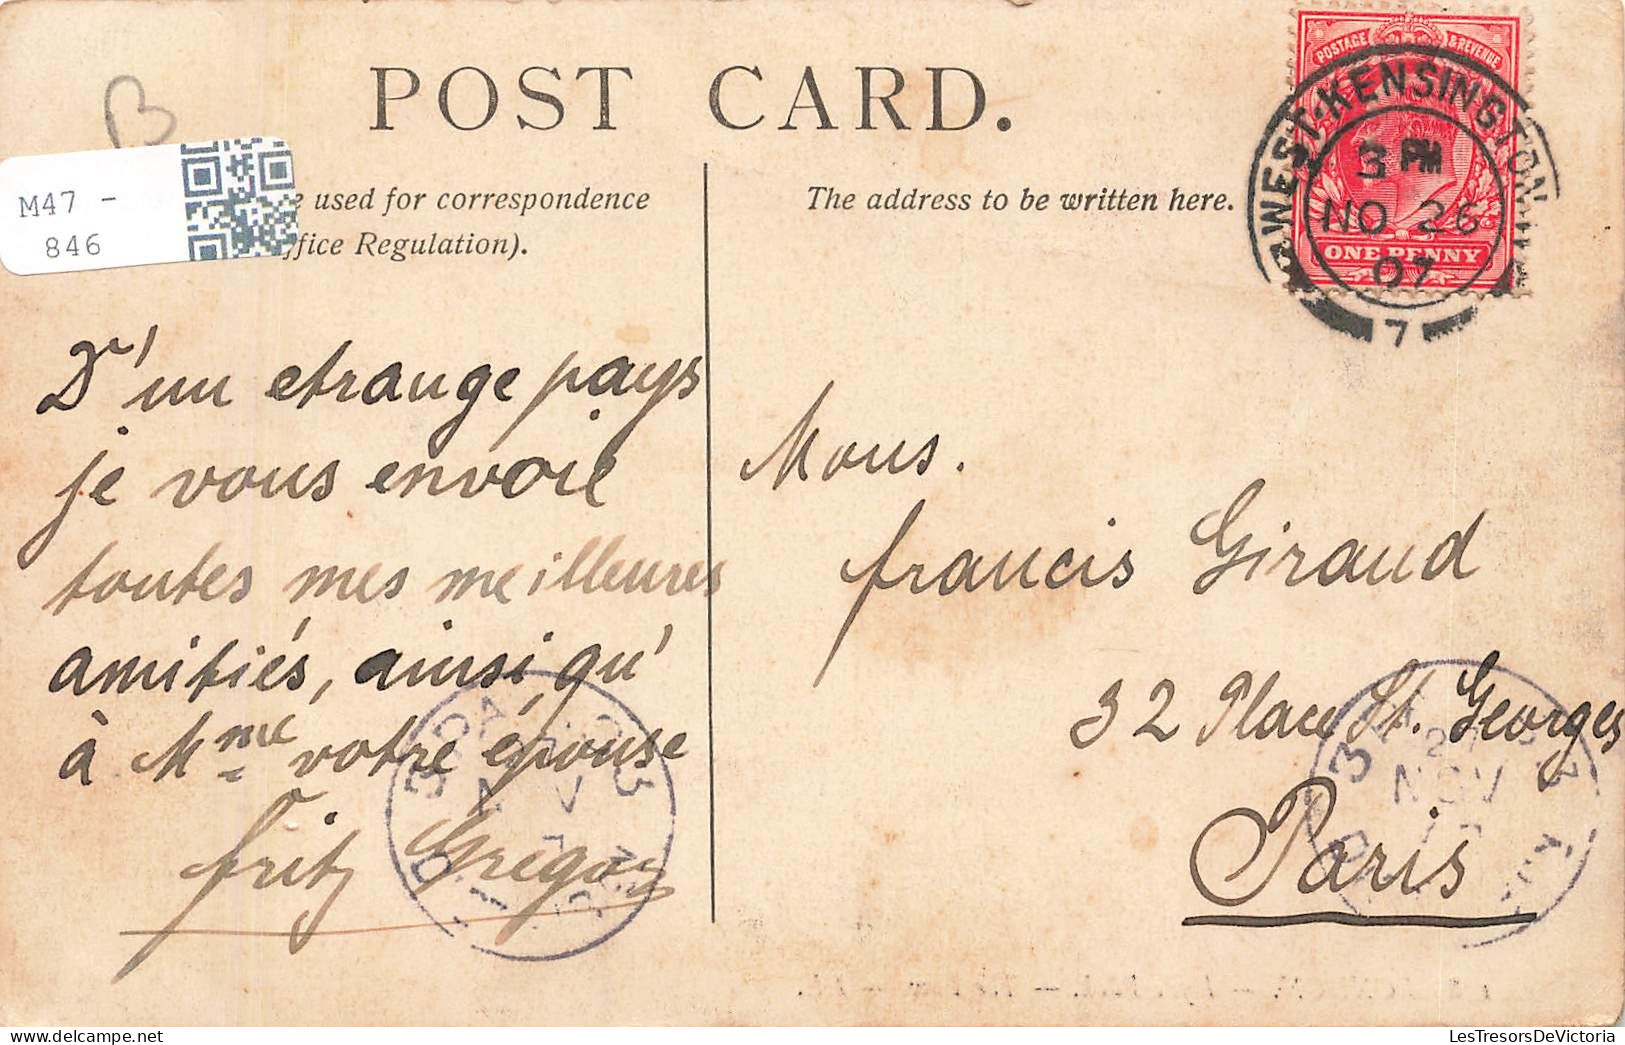 POST CARD.
B
M47 -
846
e used for correspondence
ffice Regulation).
The address to be written here.
POSTAGE & REVENUE
WEST-KENSINGTON
3 PM
NO 26
07
ONE PENNY
7
D'un etrange pays
je vous envoie
toutes mes meilleures
amitiés, ainsi qu'
à Mme votre épouse
Fritz
Mons.
Francis Giraud
32 Place St. Georges
Paris
NOV
LesTresorsDeVictoria